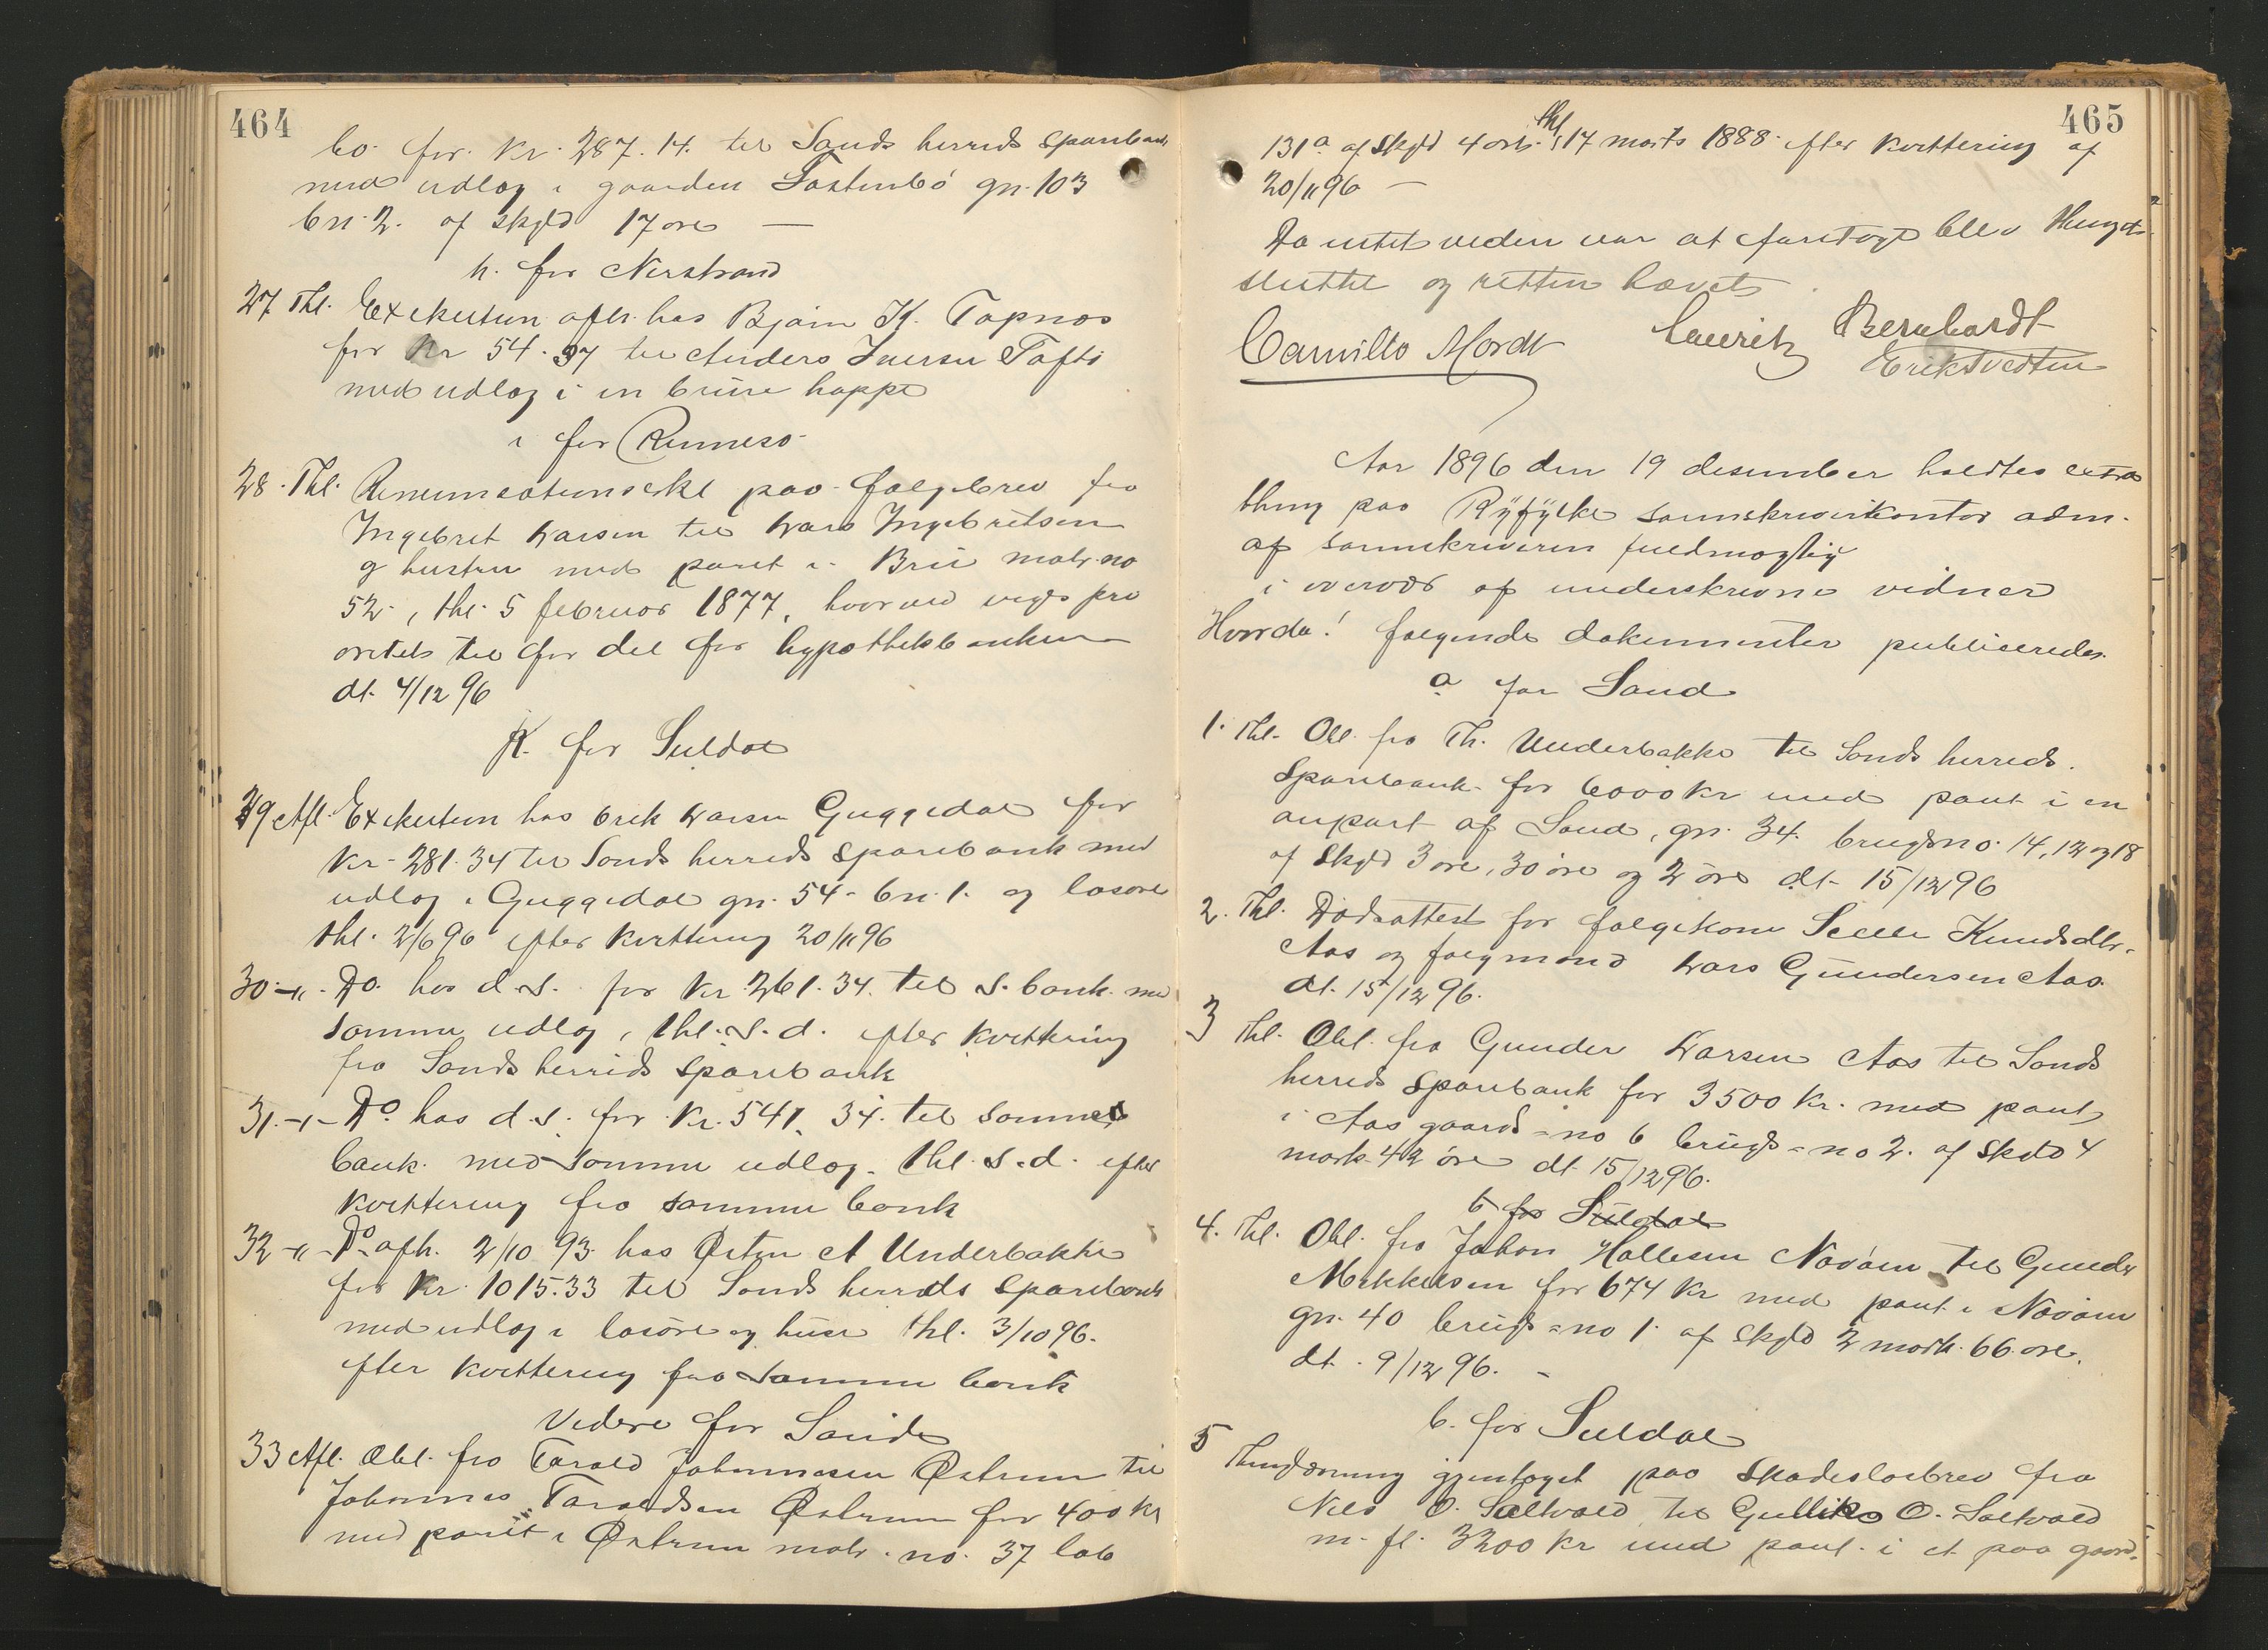 464
bø for kr. 287.14. til Sands herreds sparebank
med udlæg i gaarden Tastenbø gn. 103
bn. 2. af skyld 17 øre —
h. for Nerstrand
27. Thl. Exekution afh. hos Bjørn K. Tapnos
for Kr 54.37 til Anders Iversen Tofti
med udlæg i en brun hoppe
i for Rennesø
28. Thl. Renunsationserkl paa følgebrev fra
Ingebret Larsen til Lars Ingebretsen
og hustru med pant i Bru matr. no
52, thl. 5 februar 1877, hvorved viges pri
oritets til for del for hypothekbanken
dt. 4/12 96
K. for Suldal
29 Afl. Exekution hos Erik Larsen Guggedal for
Kr. 281.34 til Sands herreds sparebank med
udlæg i Guggedal gn. 54 - bn. 1. og løsøre
thl. 2/6 96 efter kvittering 20/11 96
30 -"- Do. hos d.s. for kr. 261.34. til s. bank med
samme udlæg, thl. s.d. efter kvittering
fra Sands herreds sparebank
31. -"- Do hos d.s. for Kr. 541. 34. til samme
bank. med samme udlæg. thl. s.d. efter
kvittering fra samme bank
32 -"- Do afh. 2/10 93 hos Østen A Underbakke
for Kr. 1015.33 til Sands herreds sparebank
med udlæg i løsøre og huse thl. 3/10 96.
efter kvittering fra samme bank
Videre for Sand
33 Afl. Obl. fra Tarald Johannesen Østrem til
Johannes Taraldsen Østrem for 400 kr
med pant i Østrem matr. no. 37 løb
465
131a af skyld 4 ort. thl 17 marts 1888. efter kvittering af
20/11 96 —
Da intet videre var at foretage blev Thinget
sluttet og retten hævet.
Camillo Mordt Lauritz Bernhardt
Erik Tvedten
Aar 1896 den 19 desember holdtes extra
thing paa Ryfylke sorenskriverikontor adm.
af sorenskriveren fuldmægtig
i overvær af underskrevne vidner
Hvorda! følgende dokumenter publiceredes.
a for Sand
1. Thl. Obl. fra Th. Underbakke til Sands herreds.
Sparebank for 6000 kr med pant i en
anpart af Sand, gn. 34. brugsno. 14, 12 og 18
af skyld 3 øre, 30 øre og 2 øre dt. 15/12 96
2. Thl. Dødsattest for følgekone Knudsdtr.
Aas og følgmand Lars Gundersen Aas.
dt. 15/12 96.
3 Thl. Obl. fra Gunder Larsen Aas til Sands
herreds Sparebank for 3500 Kr. med pant
i Aas gaards=no 6 brugs=no 2. af skyld 4
mark 42 øre dt 15/12 96.
b for Suldal
4. Thl. Obl. fra Johan Hallesen Novøien til Gunder
Mikkelsen for 674 Kr med pant i Novøien
gn. 40 brugs=no 1. af skyld 2 mark. 66 øre.
dt. 9/12 96. -
b. for Suldal
5 Thinglæsning gjentaget paa skadesløsbrev fra
Nils O. Saltvold til Gullik O. Saltvold
m. fl. 3300 kr med pant i et paa gaard-